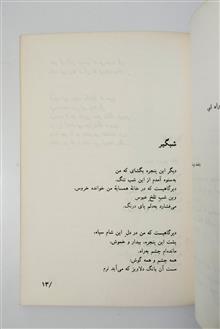 شبگیر
دیگر این پنجره بگشای که من
به‌ستوه آمدم از این شب تنگ.
دیرگاهیست که در خانهٔ همسایهٔ من خوانده خروس.
وین شب تلخ عبوس
می‌فشارد به‌دلم پای درنگ.
دیرگاهیست که من در دل این شام سیاه،
پشت این پنجره، بیدار و خموش،
مانده‌ام چشم به‌راه.
همه چشم و همه گوش:
مست آن بانگ دلاویز که می‌آید نرم
۱۳/